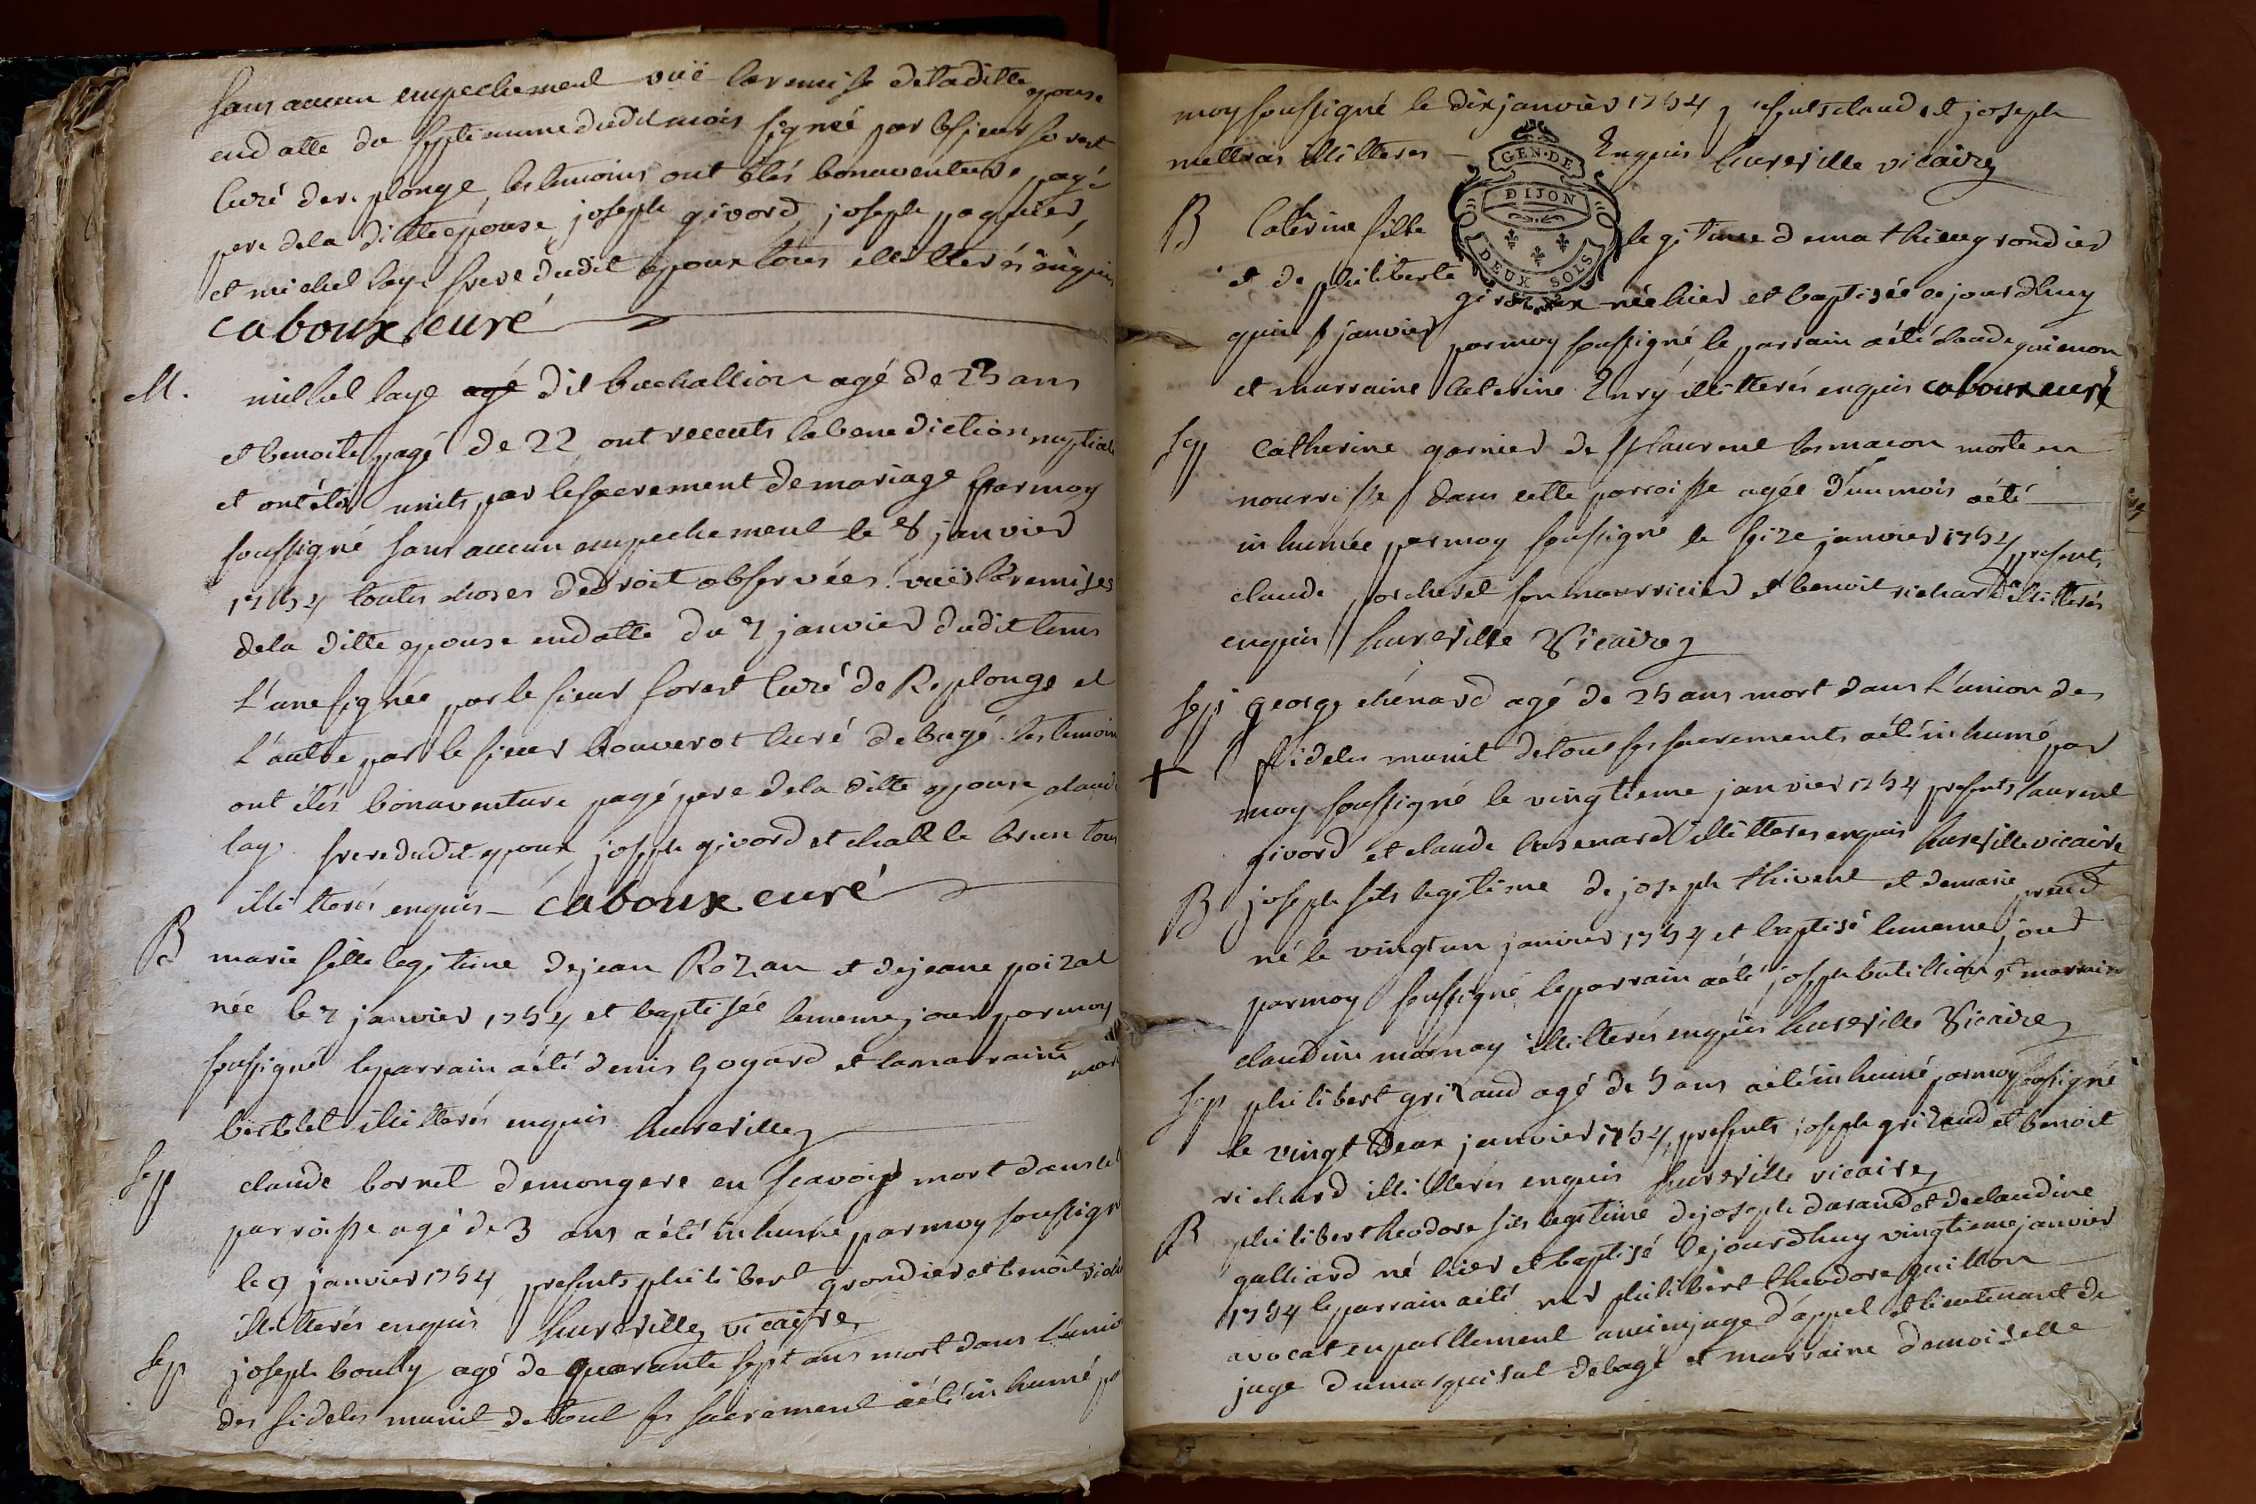 sans aucun empechement vuë la remise de la ditte epouse
en datte du septieme dudit mois signée par le sieur forest
curé de replonge, les temoins ont étés bonaventure pagé
pere de la ditte épouse, joseph givord, joseph paquier,
et michel laye frere dudit epoux tous illitterés enquis
caboux curé
M. michel laye agé dit buchallion agé de 25 ans
et benoite pagé de 22 ont receuts la benediction nuptiale
et ont étés units par le sacrement de mariage par moy
soussigné sans aucun empechement le 8 janvier
1754 toutes choses de droit observées vuës les remises
de la ditte epouse en datte du 7 janvier dudit tems
l'une signée par le sieur forest curé de Replonge et
l'autre par le sieur bouverot curé de bagé. les temoins
ont étés bonaventure pagé pere de la ditte epouse, claude
laye frere dudit epoux, joseph givord et brun tous
illitterés enquis caboux curé
B marie fille legitime de jean Rozan et de jeane poizat
née le 7 janvier 1754 et baptisée le meme jour par moy
soussigné le parrain a été denis gogard et la marraine
illitterés enquis hureville
Sep claude bornet de mongere en mort dans
parroisse agé de 3 ans a été inhumé par moy
le 9 janvier 1754 presents philibert grondier et benoit
illitterés enquis hureville vicaire
Sep joseph bouly agé de quarante sept ans mort dans
des fideles munit de tout ses sacrement a été inhumé
moy soussigné le dix janvier 1754 claud et joseph
illitteres Enquis hureville vicaire
GEN·DE
DIJON
DEUX SOLS
B Catherine fille legitime de mathieu grondier
et de philiberte née hier et baptisée ce jourdhuy
janvier par moy soussigné, le parrain a été claude guienon
et marraine Caterine illitterés enquis caboux curé
Sep Catherine garnier de St laurent les macon morte en
nourrisse dans cette parroisse agée d'un mois a été
inhumée par moy soussigné le seize janvier 1754 presents
claude son nourricier et benoit richard illitterés
enquis hureville Vicaire
Sep george chénard agé de 25 ans mort dans l'union des
fideles munit de tous ses sacrements a été inhumé par
moy soussigné le vingtieme janvier 1754 presents laurent
givord et claude illitteres enquis hureville vicaire
B joseph fils legitime de joseph thivent et de marie
né le vingt un janvier 1754 et baptisé le meme jour
par moy soussigné le parrain a été joseph butillion et marraine
claudine marnay illitterés enquis hureville Vicaire
Sep philibert grizaud agé de 5 ans a été inhumé par moy soussigné
le vingt Deux janvier 1754, presents joseph grizaud et benoit
richard illitterés enquis hureville vicaire
B philibert theodore fils legitime de joseph darand et de claudine
galliard né hier et baptisé ce jourdhuy vingtieme janvier
1754 le parrain a été philibert theodore guillon
avocat en parllement juge d'appel et lieutenant de
juge du marquisat de bagé et marraine damoiselle